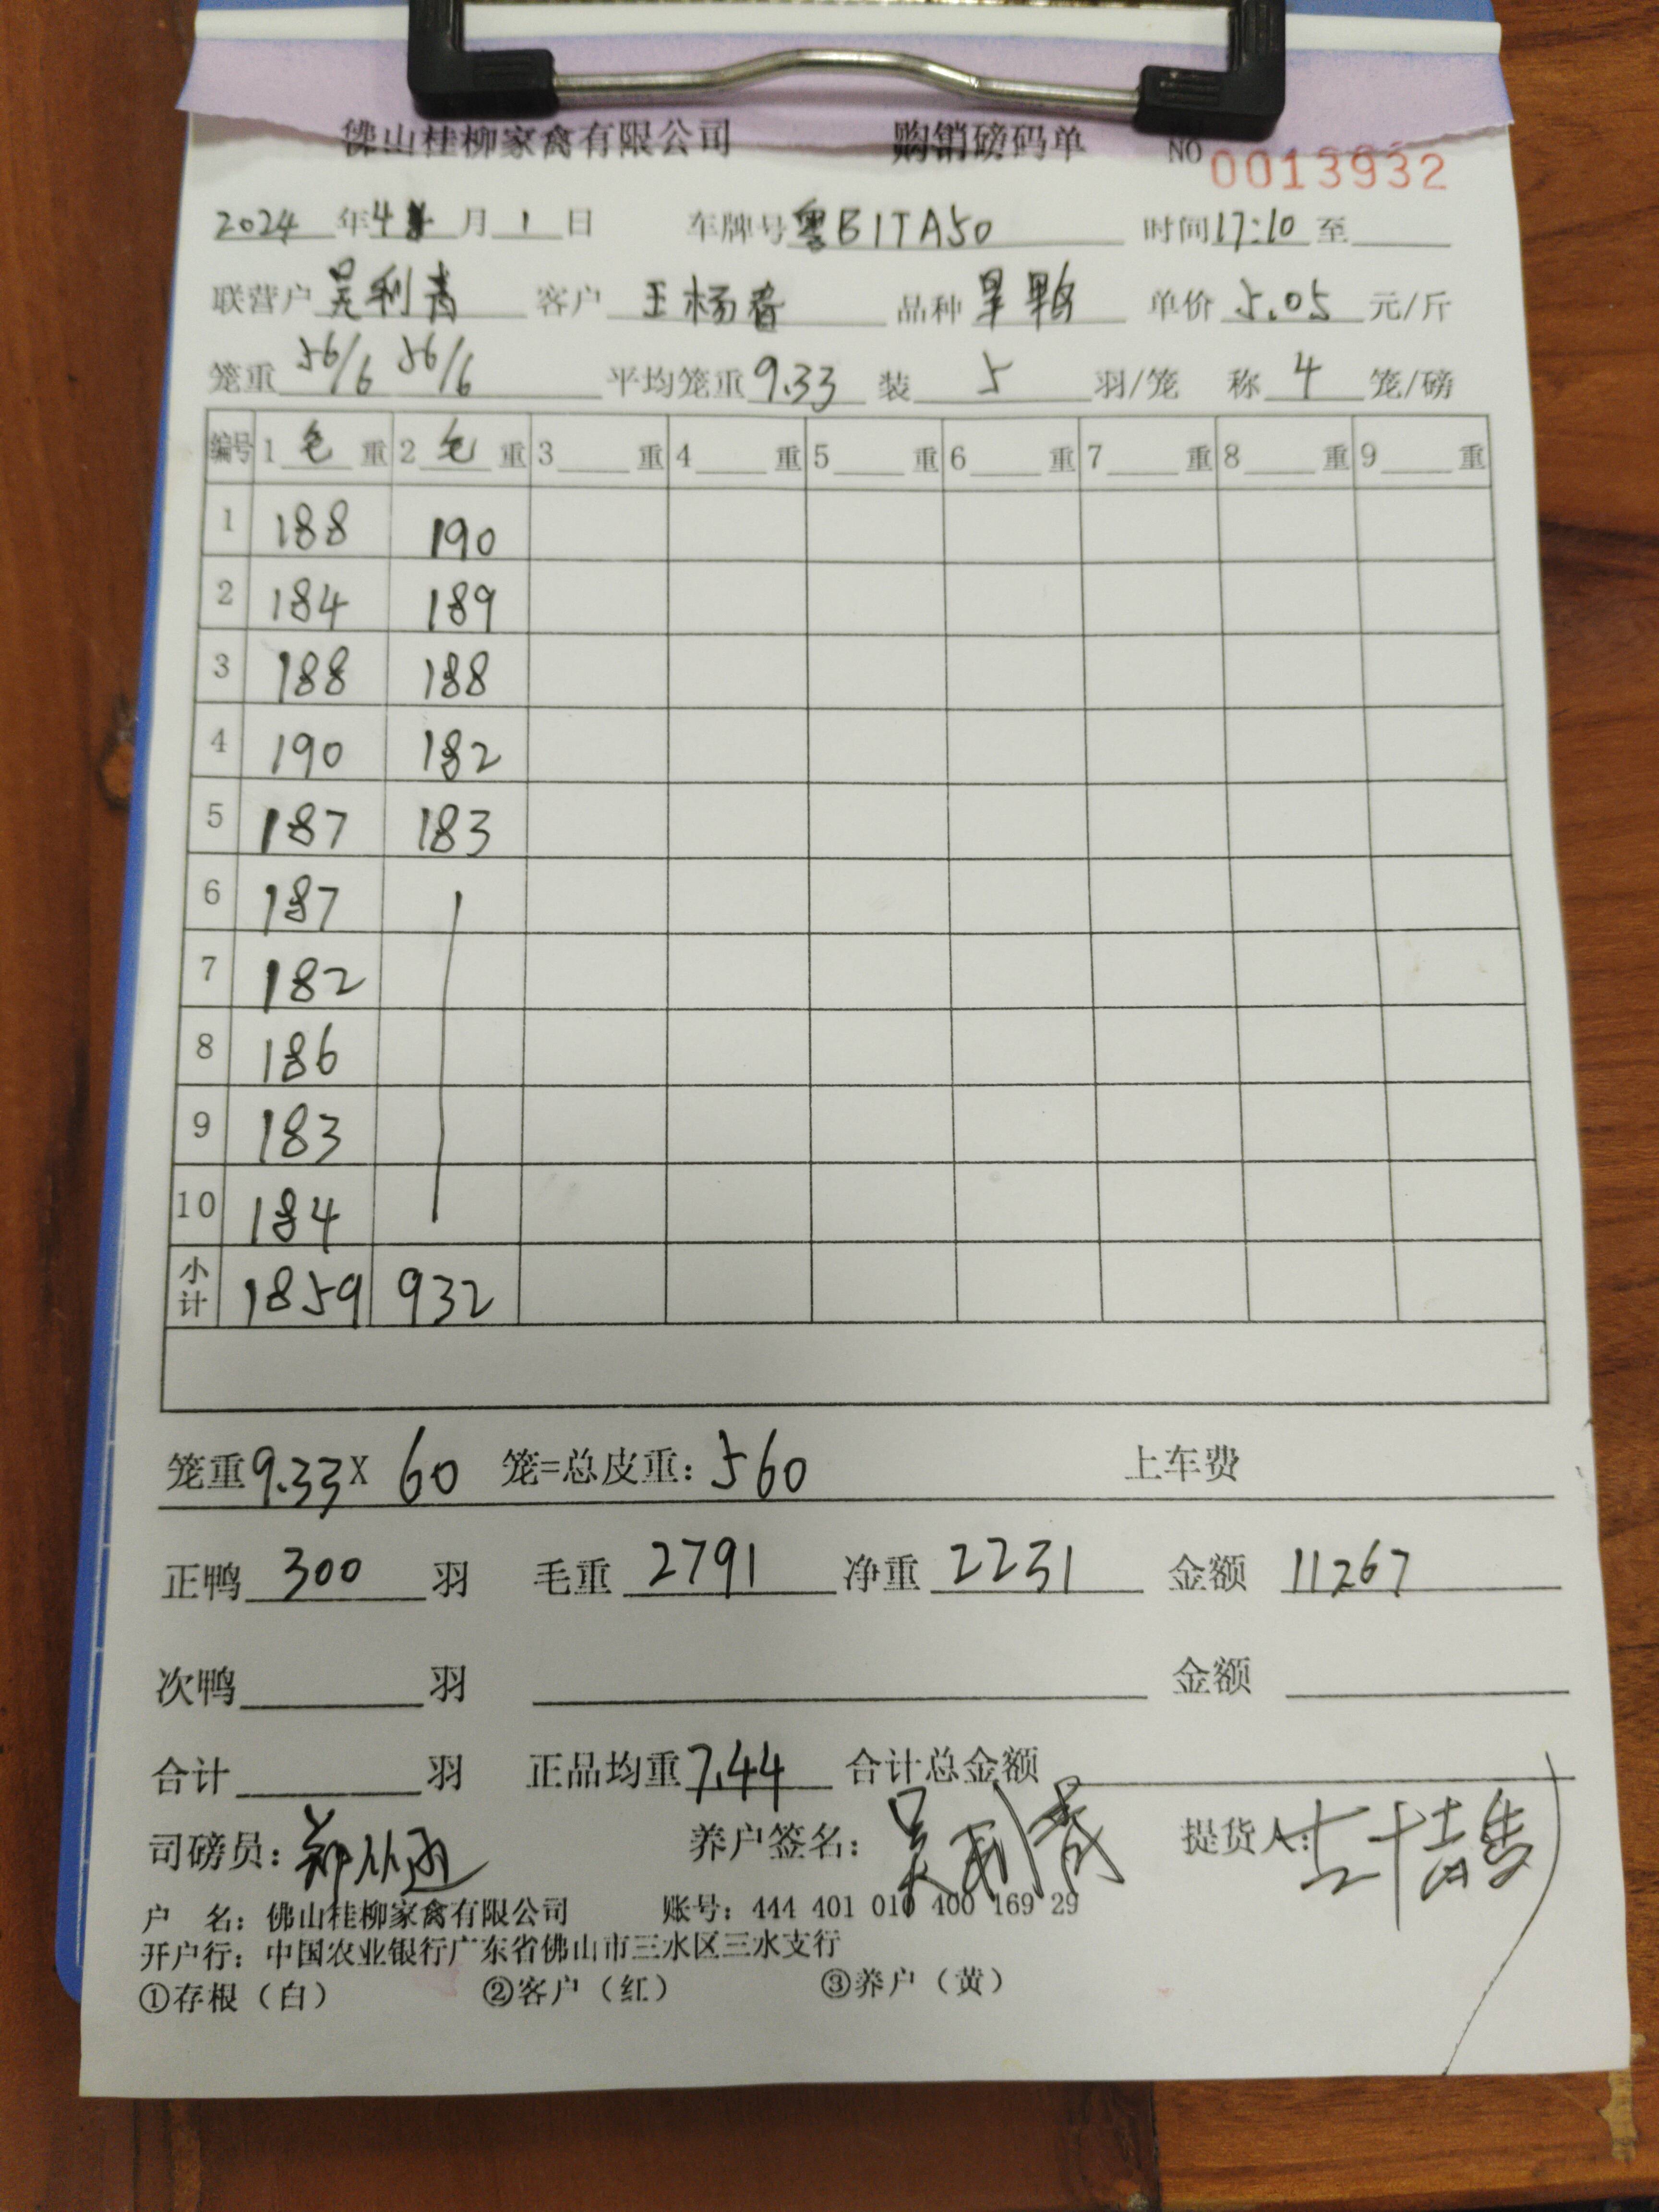 佛山桂柳家禽有限公司 购销磅码单 NO 0013932
2024 年 4 月 1 日 车牌号 粤B1TA50 时间 17:10 至
联营户 吴利青 客户 王杨春 品种 旱鸭 单价 5.05 元/斤
笼重 56/6 56/6 平均笼重 9.33 装 5 羽/笼 称 4 笼/磅
编号 1 毛 重 2 毛 重 3 重 4 重 5 重 6 重 7 重 8 重 9 重
1 188 190
2 184 189
3 188 188
4 190 182
5 187 183
6 187
7 182
8 186
9 183
10 184
小计 1859 932
笼重 9.33 X 60 笼=总皮重: 560 上车费
正鸭 300 羽 毛重 2791 净重 2231 金额 11267
次鸭 羽 金额
合计 羽 正品均重 7.44 合计总金额
司磅员: 养户签名: 吴利青 提货人:
户 名: 佛山桂柳家禽有限公司 账号: 444 401 010 400 169 29
开户行: 中国农业银行广东省佛山市三水区三水支行
①存根（白） ②客户（红） ③养户（黄）